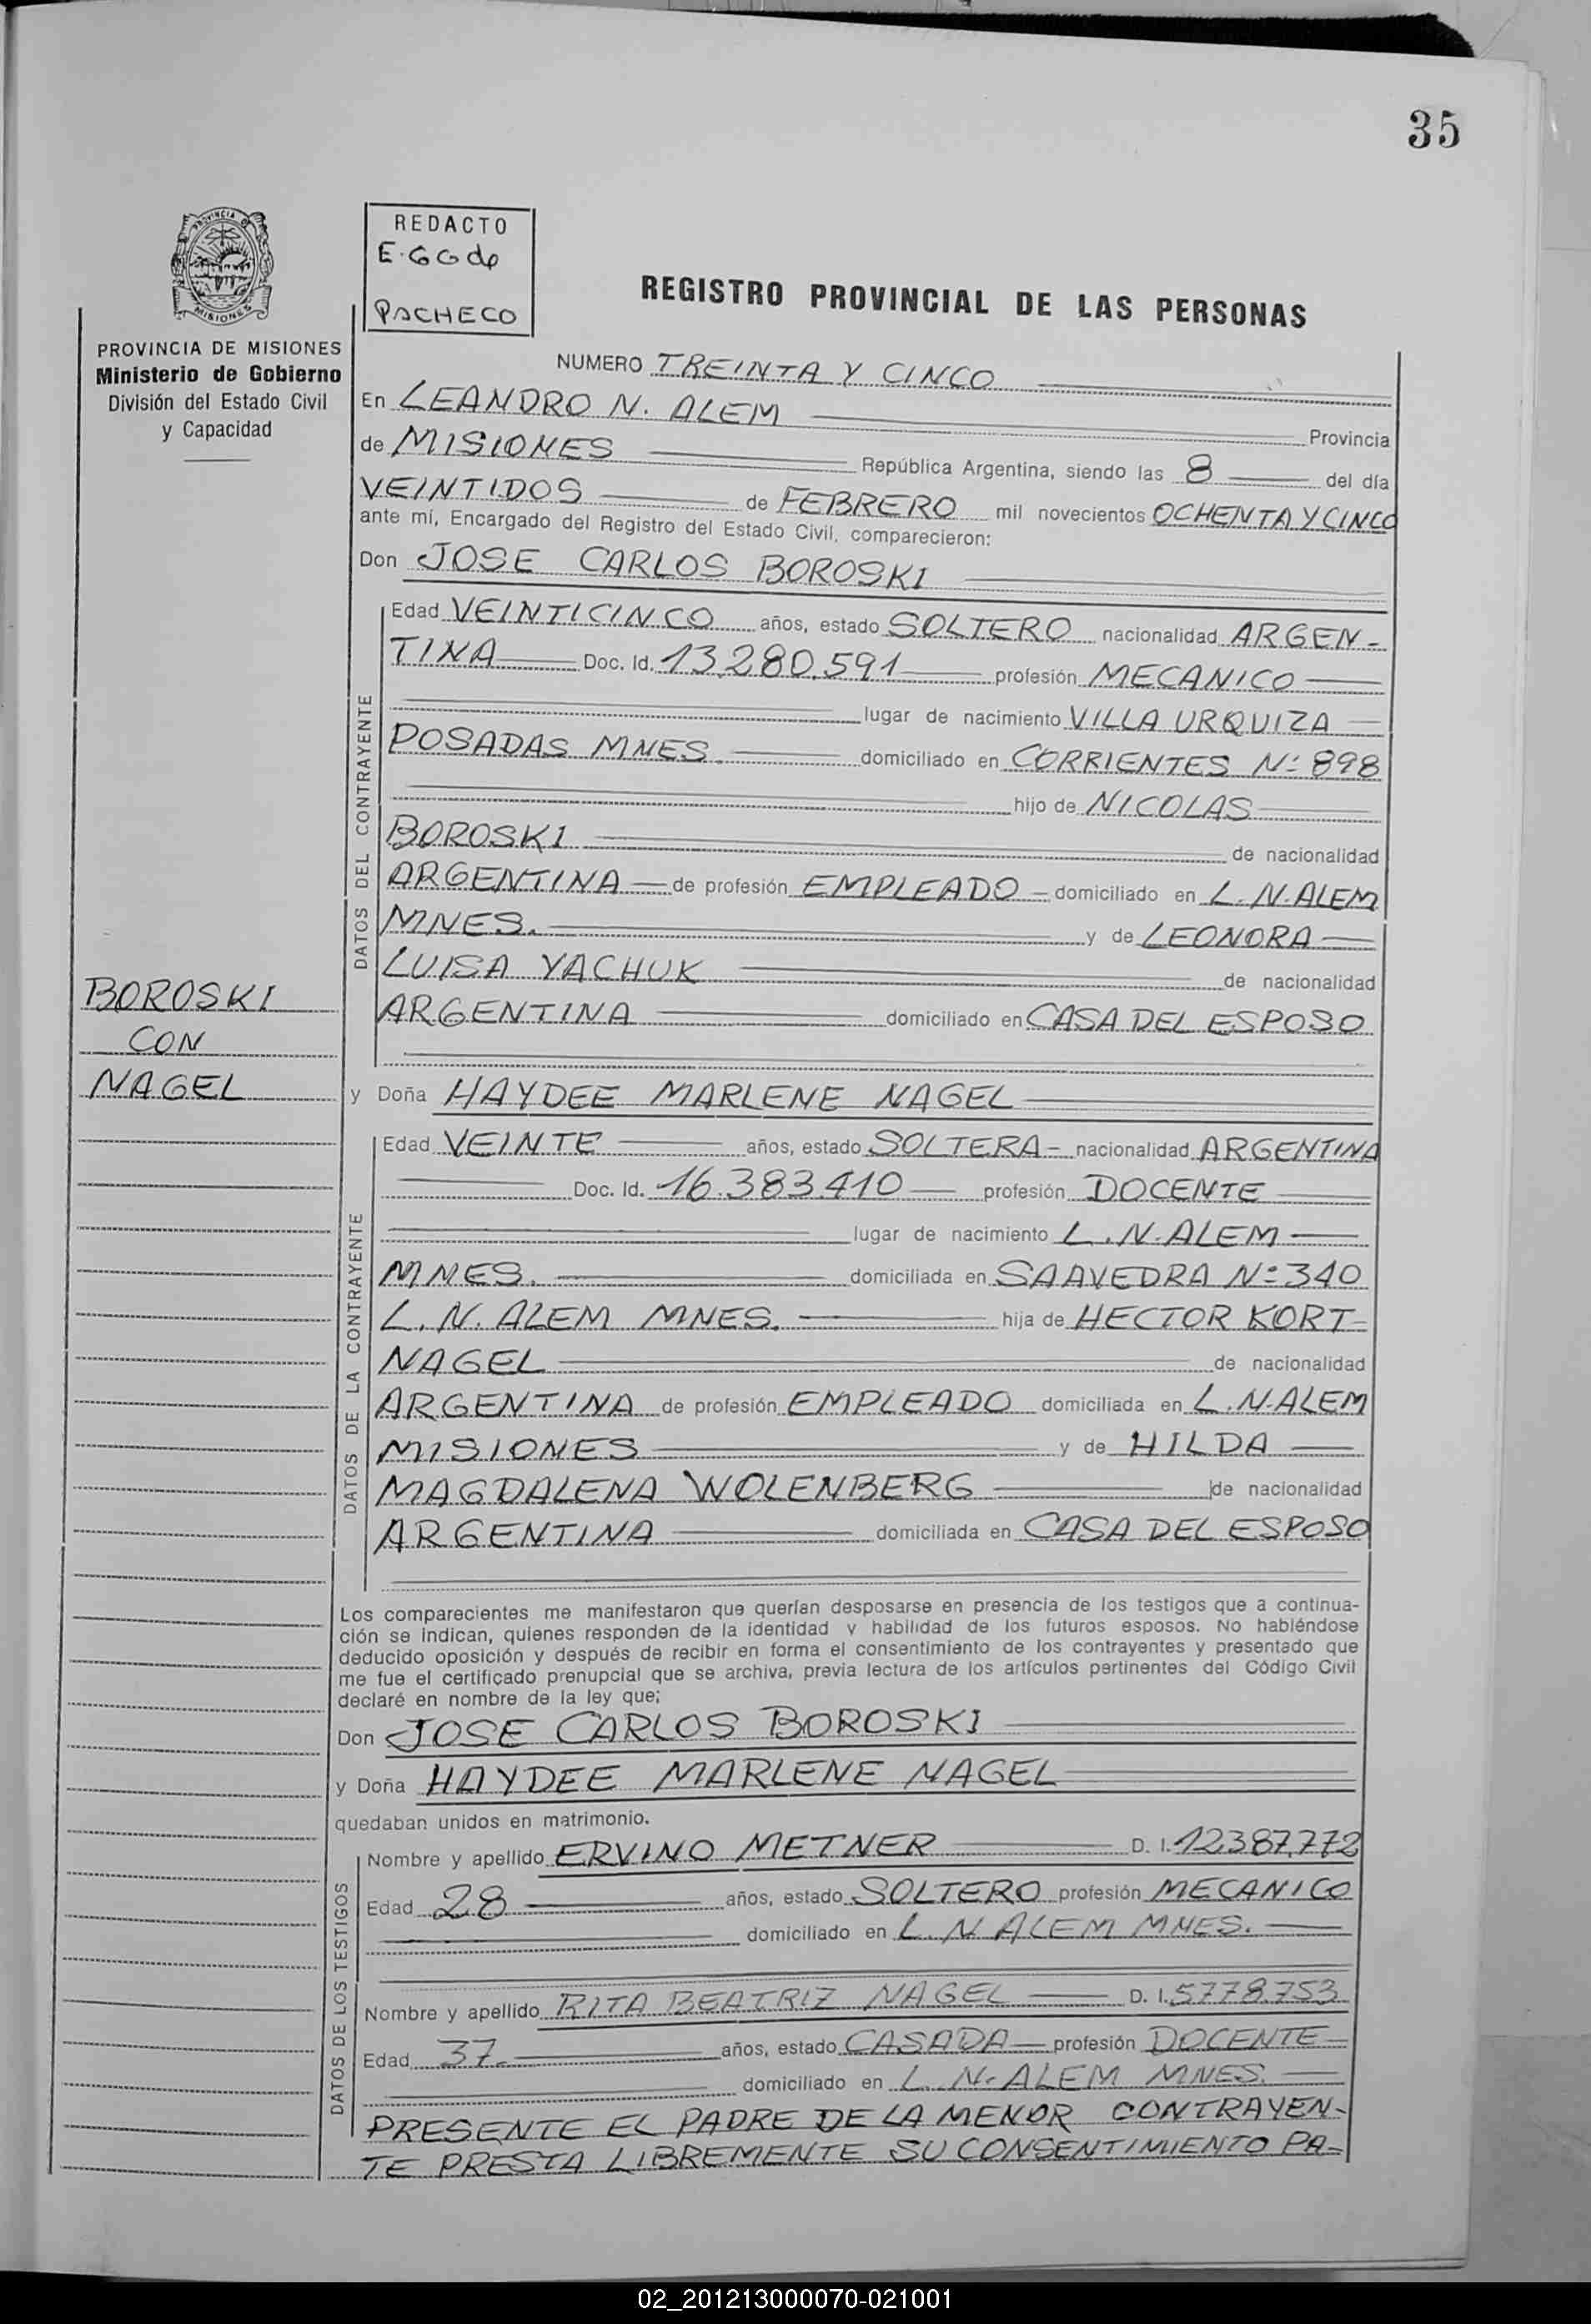 35
PROVINCIA DE
MISIONES
REDACTO
E.GG de
PACHECO
REGISTRO PROVINCIAL DE LAS PERSONAS
PROVINCIA DE MISIONES
Ministerio de Gobierno
División del Estado Civil
y Capacidad
NUMERO TREINTA Y CINCO
En LEANDRO N. ALEM Provincia
de MISIONES República Argentina, siendo las 8 del día
VEINTIDOS de FEBRERO mil novecientos OCHENTA Y CINCO
ante mí, Encargado del Registro del Estado Civil, comparecieron:
Don JOSE CARLOS BOROSKI
DATOS DEL CONTRAYENTE
Edad VEINTICINCO años, estado SOLTERO nacionalidad ARGEN-
TINA Doc. Id. 13.280.591 profesión MECANICO
lugar de nacimiento VILLA URQUIZA
POSADAS MNES. domiciliado en CORRIENTES Nº 898
hijo de NICOLAS
BOROSKI de nacionalidad
ARGENTINA de profesión EMPLEADO domiciliado en L. N. ALEM
MNES. y de LEONORA
LUISA YACHUK de nacionalidad
ARGENTINA domiciliado en CASA DEL ESPOSO
BOROSKI
CON
NAGEL
y Doña HAYDEE MARLENE NAGEL
DATOS DE LA CONTRAYENTE
Edad VEINTE años, estado SOLTERA - nacionalidad ARGENTINA
Doc. Id. 16.383.410 profesión DOCENTE
lugar de nacimiento L. N. ALEM
MNES. domiciliada en SAAVEDRA Nº 340
L. N. ALEM MNES. hija de HECTOR KORT
NAGEL de nacionalidad
ARGENTINA de profesión EMPLEADO domiciliada en L. N. ALEM
MISIONES y de HILDA
MAGDALENA WOLENBERG de nacionalidad
ARGENTINA domiciliada en CASA DEL ESPOSO
Los comparecientes me manifestaron que querían desposarse en presencia de los testigos que a continua-
ción se indican, quienes responden de la identidad y habilidad de los futuros esposos. No habiéndose
deducido oposición y después de recibir en forma el consentimiento de los contrayentes y presentado que
me fue el certificado prenupcial que se archiva, previa lectura de los artículos pertinentes del Código Civil
declaré en nombre de la ley que;
Don JOSE CARLOS BOROSKI
y Doña HAYDEE MARLENE NAGEL
quedaban unidos en matrimonio.
DATOS DE LOS TESTIGOS
Nombre y apellido ERVINO METNER D. I. 12.387.772
Edad 28 años, estado SOLTERO profesión MECANICO
domiciliado en L. N. ALEM MNES.
Nombre y apellido RITA BEATRIZ NAGEL D. I. 5778.753
Edad 37. años, estado CASADA profesión DOCENTE
domiciliado en L. N. ALEM MNES.
PRESENTE EL PADRE DE LA MENOR CONTRAYEN-
TE PRESTA LIBREMENTE SU CONSENTIMIENTO PA-
02_201213000070-021001